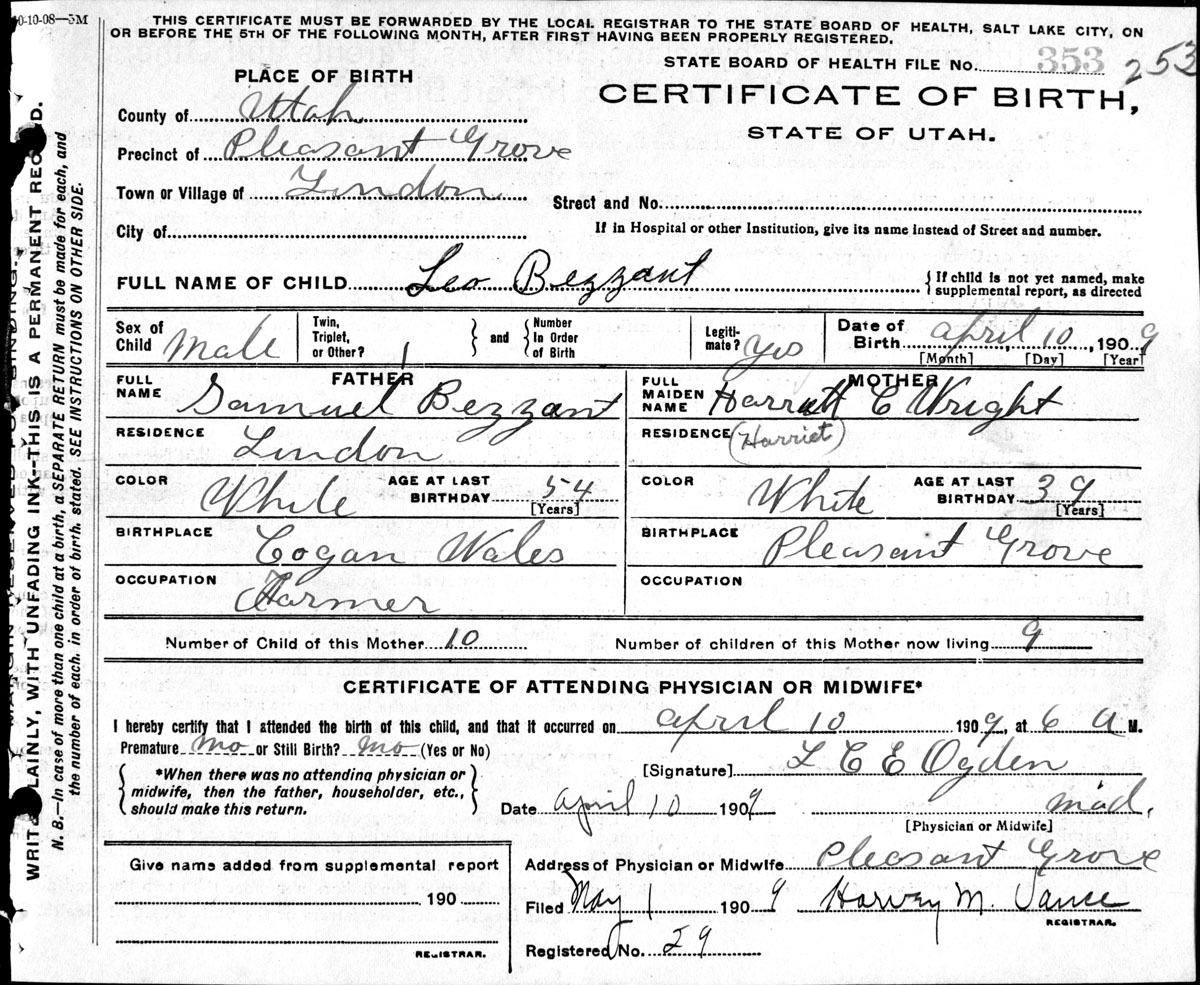 10-10-08—5M
THIS CERTIFICATE MUST BE FORWARDED BY THE LOCAL REGISTRAR TO THE STATE BOARD OF HEALTH, SALT LAKE CITY, ON
OR BEFORE THE 5TH OF THE FOLLOWING MONTH, AFTER FIRST HAVING BEEN PROPERLY REGISTERED.
STATE BOARD OF HEALTH FILE No. 353 253
PLACE OF BIRTH
CERTIFICATE OF BIRTH,
STATE OF UTAH.
County of Utah
Precinct of Pleasant Grove
Town or Village of Lindon
Street and No.
City of
If in Hospital or other Institution, give its name instead of Street and number.
FULL NAME OF CHILD Leo Bezzant
{ If child is not yet named, make
supplemental report, as directed
Sex of Child Male
Twin, Triplet, or Other? 1 } and { Number In Order of Birth
Legiti-mate? Yes
Date of Birth April 10, 1909
[Month] [Day] [Year]
FATHER
FULL NAME Samuel Bezzant
MOTHER
FULL MAIDEN NAME Harriett C Wright
RESIDENCE Lindon
RESIDENCE (Harriet)
COLOR White AGE AT LAST BIRTHDAY 54 [Years]
COLOR White AGE AT LAST BIRTHDAY 39 [Years]
BIRTHPLACE Cogan Wales
BIRTHPLACE Pleasant Grove
OCCUPATION Farmer
OCCUPATION
Number of Child of this Mother 10
Number of children of this Mother now living 9
CERTIFICATE OF ATTENDING PHYSICIAN OR MIDWIFE*
I hereby certify that I attended the birth of this child, and that it occurred on April 10 1909, at 6 A M.
Premature no or Still Birth? no (Yes or No)
{ *When there was no attending physician or
midwife, then the father, householder, etc.,
should make this return. }
[Signature] L C E Ogden
Date April 10 1909
Mid.
[Physician or Midwife]
Give name added from supplemental report
190
REGISTRAR.
Address of Physician or Midwife Pleasant Grove
Filed May 1 1909 Harvey M. Vance
REGISTRAR.
Registered No. 29
WRITE PLAINLY, WITH UNFADING INK--THIS IS A PERMANENT RECORD.
N. B.—In case of more than one child at a birth, a SEPARATE RETURN must be made for each, and
the number of each, in order of birth, stated. SEE INSTRUCTIONS ON OTHER SIDE.